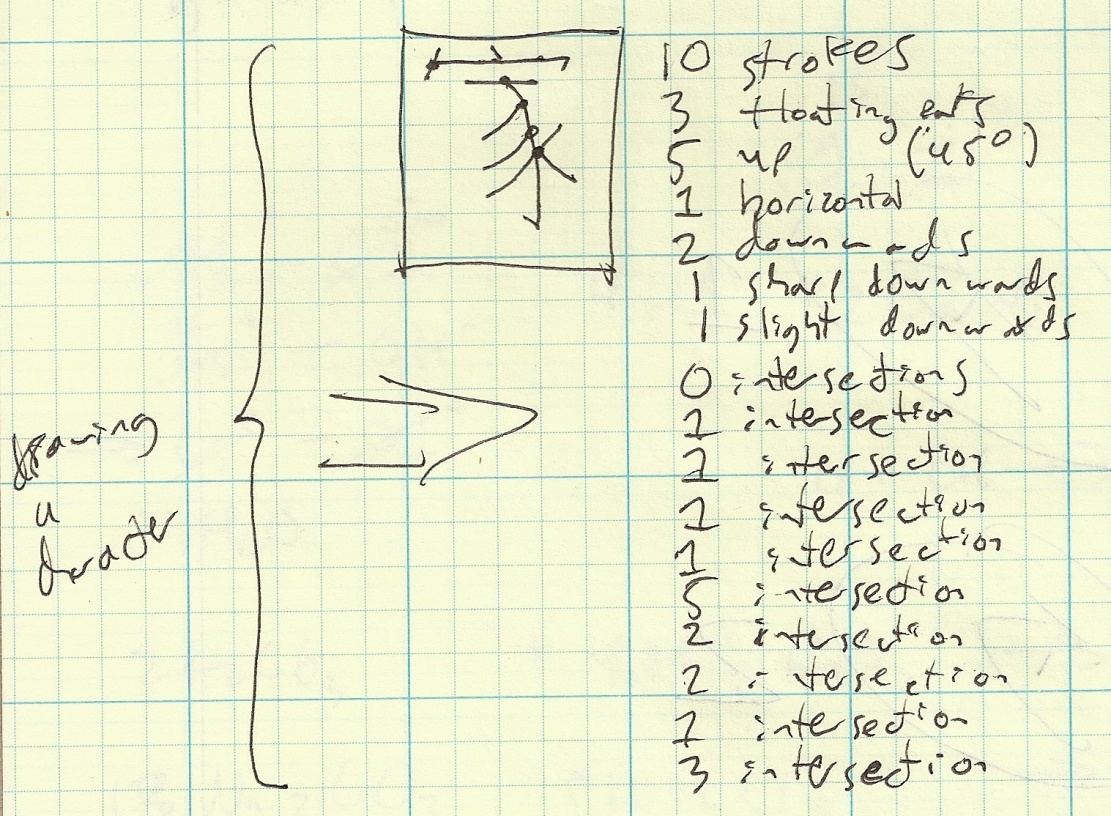 家
10 strokes
3 floating ends
5 up (45°)
1 horizontal
2 downwards
1 sharp downwards
1 slight downwards
0 intersections
1 intersection
1 intersection
1 intersection
1 intersection
5 intersection
2 intersection
2 intersection
1 intersection
3 intersection
drawing
a
character